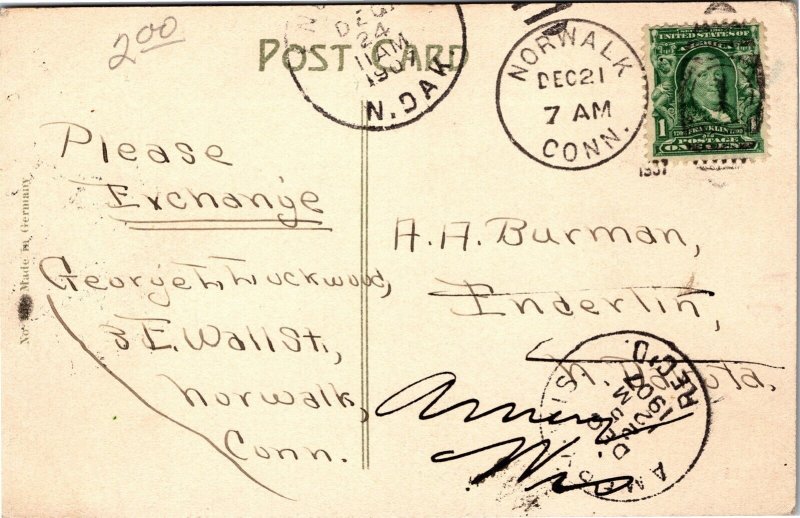 2.00
POST CARD
DEC
24
11 AM
1907
N. DAK.
NORWALK
DEC 21
7 AM
CONN.
1907
UNITED STATES OF AMERICA
1
1
FRANKLIN
POSTAGE
ONE CENT
Please
Exchange
George L. Luckwood,
3 E. Wall St.,
Norwalk,
Conn.
Made in Germany
No.
A. A. Burman,
Enderlin,
N. Dakota.
Amery
Wis
AMERY WIS
DEC
1907
REC'D.